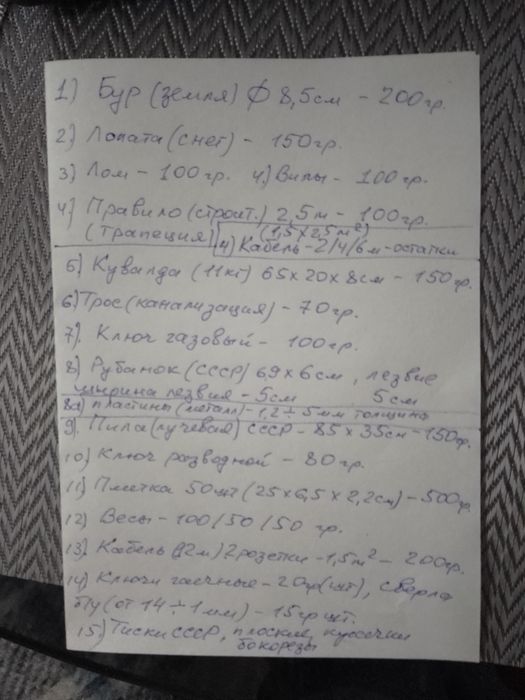 1) Бур (земля) ϕ 8,5см - 200гр.
2) Лопата (снег) - 150гр.
3) Лом - 100гр. 4.) Вилы - 100гр.
4) Правило (строит.) 2,5м - 100гр.
(трапеция) (1,5 x 2,5 м²)
4) Кабель - 2/4/6м - остатки
5) Кувалда (11кг) 65 x 20 x 8см - 150гр.
6) Трос (канализация) - 70гр.
7) Ключ газовый - 100гр.
8) Рубанок (СССР) 69 x 6см, лезвие
ширина лезвия - 5см 5см
8а) пластины (металл) - 1,2 ÷ 5мм толщина
9) Пила (лучевая) СССР - 85 x 35см - 150гр.
10) Ключ разводной - 80гр.
11) Плитка 50шт (25 x 6,5 x 2,2см) - 500гр.
12) Весы - 100/50/50 гр.
13) Кабель (12м) 2 розетки - 1,5м² - 200гр.
14) Ключи гаечные - 20гр (шт), сверла
б/у (от 14 ÷ 1мм) - 15гр шт.
15) Тиски СССР, плоские, кусочки
бокорезы